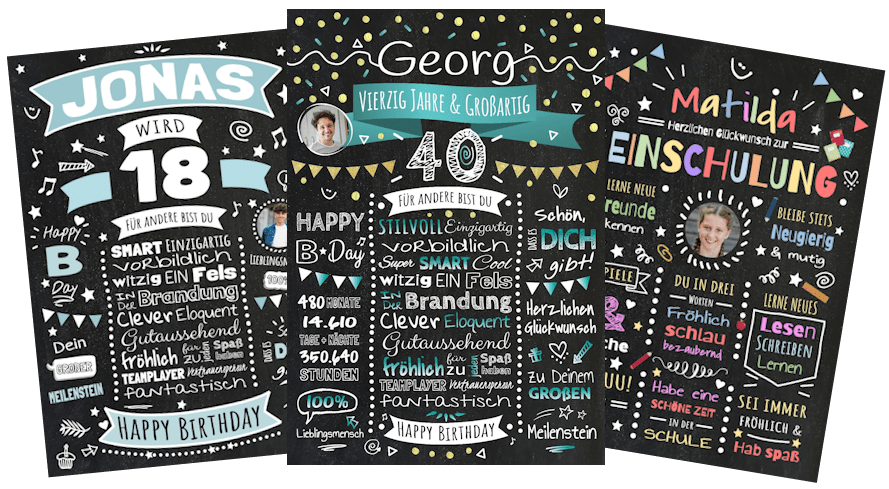 JONAS
WIRD
18
FÜR ANDERE BIST DU
Happy
B
Day
Dein
GROßER
MEILENSTEIN
SMART EINZIGARTIG
vorbildlich
witzig EIN Fels
IN DER Brandung
Clever Eloquent
Gutaussehend
fröhlich für zu jeden Spaß haben
TEAMPLAYER
fantastisch
HAPPY BIRTHDAY
100%
Georg
VIERZIG JAHRE & GROßARTIG
40
FÜR ANDERE BIST DU
HAPPY
B DAY
480 MONATE
14.610
TAGE + NÄCHTE
350.640
STUNDEN
100%
Lieblingsmensch
STILVOLL Einzigartig
vorbildlich
Super SMART Cool
witzig EIN Fels
IN DER Brandung
Clever Eloquent
Gutaussehend
fröhlich für zu jeden Spaß haben
TEAMPLAYER Vertrauensperson
fantastisch
HAPPY BIRTHDAY
Schön,
DASS ES
DICH
gibt!
Herzlichen
Glückwunsch
zu Deinem
GROßEN
Meilenstein
Matilda
Herzlichen Glückwunsch zur
EINSCHULUNG
LERNE NEUE
Freunde
kennen
&
DU IN DREI
WORTEN
Fröhlich
schlau
bezaubernd
Habe eine
SCHÖNE ZEIT
IN DER
SCHULE
BLEIBE STETS
Neugierig
& mutig
LERNE NEUES
Lesen
SCHREIBEN
Lernen
SEI IMMER
FRÖHLICH &
Hab spaß